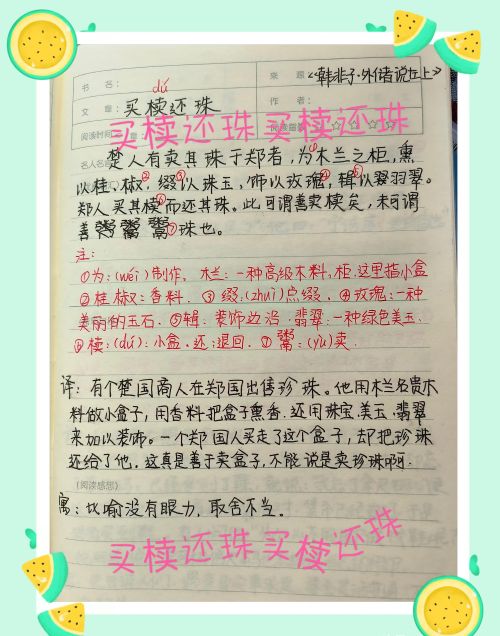 书 名：
来 源：《韩非子·外储说左上》
dú
文 章：买椟还珠
作 者：
阅读时间
阅读指数 ☆☆☆☆
买椟还珠买椟还珠
名人名言
楚人有卖其珠于郑者，为①木兰之柜，熏
以桂椒②，缀③以珠玉，饰以玫瑰④，辑⑤以翡翠。
郑人买其椟⑥而还其珠。此可谓善卖椟矣，未可谓
善鬻鬻鬻⑦珠也。
注：
①为：(wéi)制作，木兰：一种高级木料，柜：这里指小盒
②桂椒：香料．③缀：(zhuì)点缀．④玫瑰：一种
美丽的玉石．⑤辑：装饰边沿．翡翠：一种绿色美玉．
⑥椟：(dú)：小盒．还：退回．⑦鬻：(yù)卖．
译：有个楚国商人在郑国出售珍珠。他用木兰名贵木
料做小盒子，用香料把盒子熏香．还用珠宝．美玉．翡翠
来加以装饰。一个郑国人买走了这个盒子，却把珍珠
还给了他．这真是善于卖盒子，不能说是卖珍珠啊．
(阅读感想)
寓：比喻没有眼力，取舍不当。
买椟还珠买椟还珠